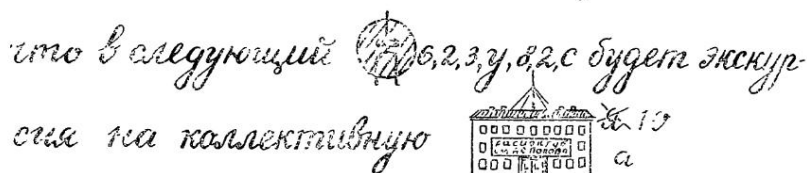 что в следующий 6,2,3,у,8,2,с будет экскур-
сия на коллективную
а